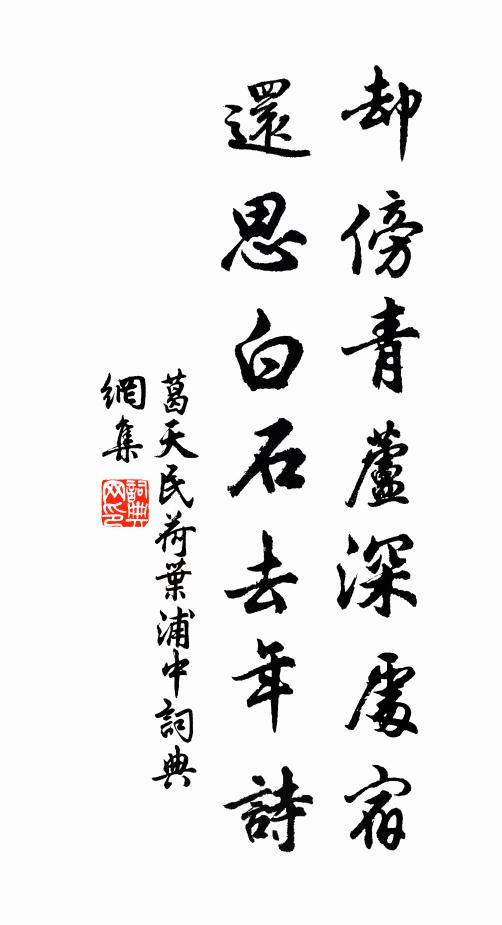 却傍青蘆深處宿
還思白石去年詩
葛天民荷葉浦中詞典
網集
詞典網印